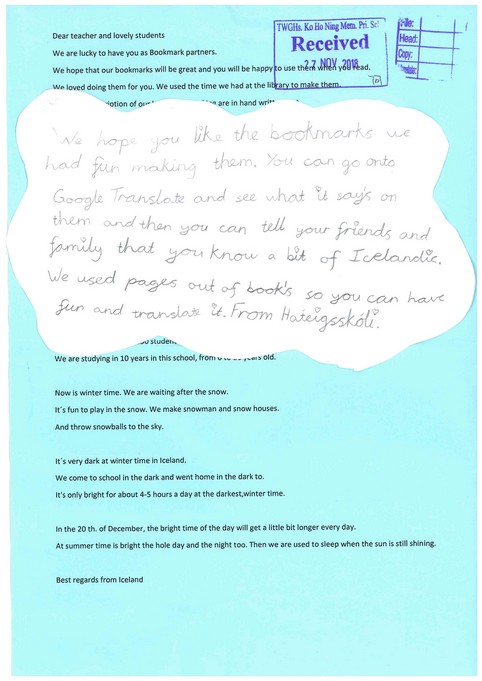 Dear teacher and lovely students
We are lucky to have you as Bookmark partners.
We hope that our bookmarks will be great and you will be happy to use them when you read.
We loved doing them for you. We used the time we had at the library to make them.
TWGHs. Ko Ho Ning Mem. Pri. Sch
Received
27 NOV 2018
File:
Head:
Copy:
are in hand
We hope you like the bookmarks we
had fun making them. You can go onto
Google Translate and see what it says on
them and then you can tell your friends and
family that you know a bit of Icelandic.
We used pages out of book's so you can have
fun and translate it. From Háteigsskóli.
We are studying in 10 years in this school, from years old.
Now is winter time. We are waiting after the snow.
It´s fun to play in the snow. We make snowman and snow houses.
And throw snowballs to the sky.
It´s very dark at winter time in Iceland.
We come to school in the dark and went home in the dark to.
It's only bright for about 4-5 hours a day at the darkest,winter time.
In the 20 th. of December, the bright time of the day will get a little bit longer every day.
At summer time is bright the hole day and the night too. Then we are used to sleep when the sun is still shining.
Best regards from Iceland